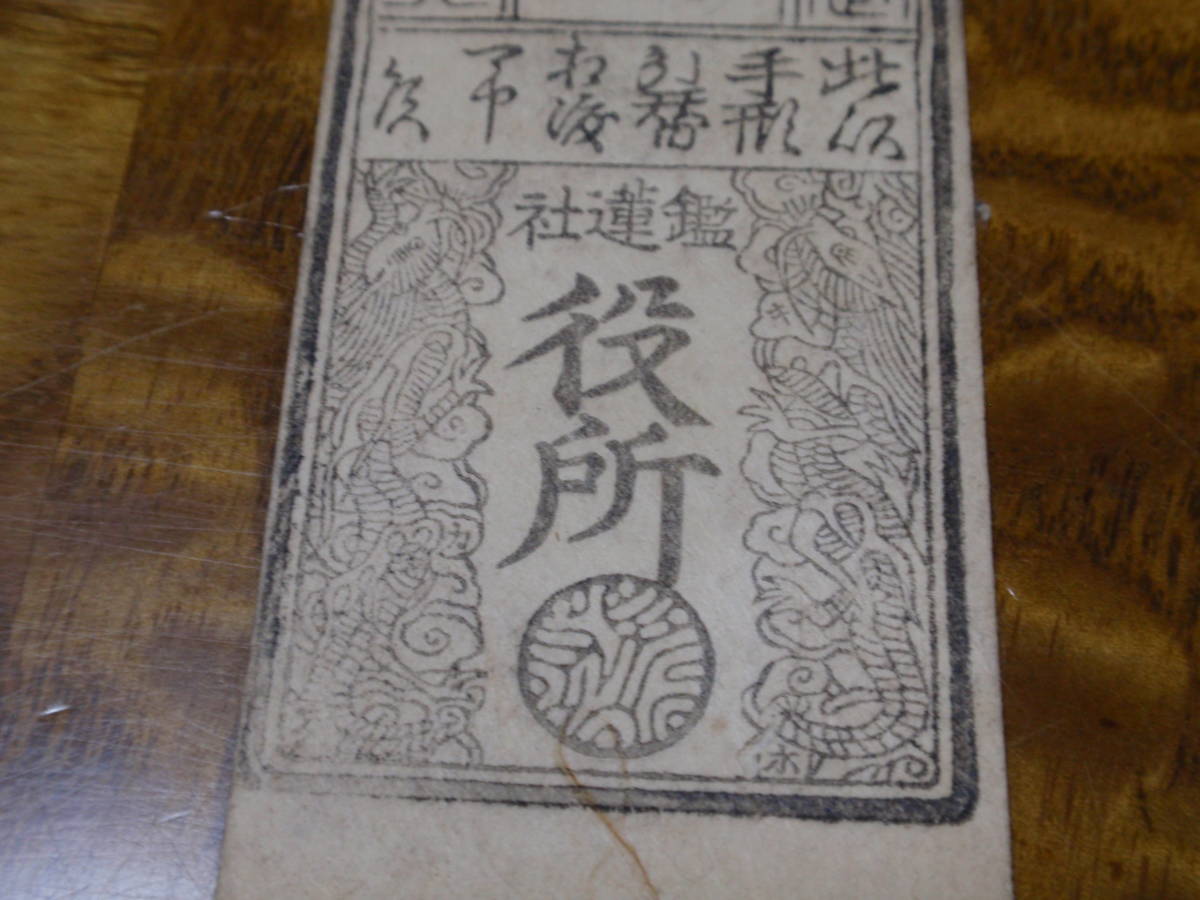 此以
手形
引替
相渡
可申
候
鑑蓮社
役所